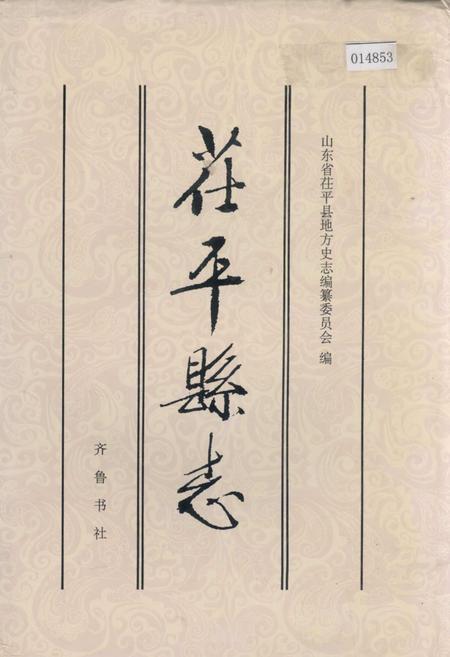 014853
山东省茌平县地方史志编纂委员会 编
茌平縣志
齐鲁书社